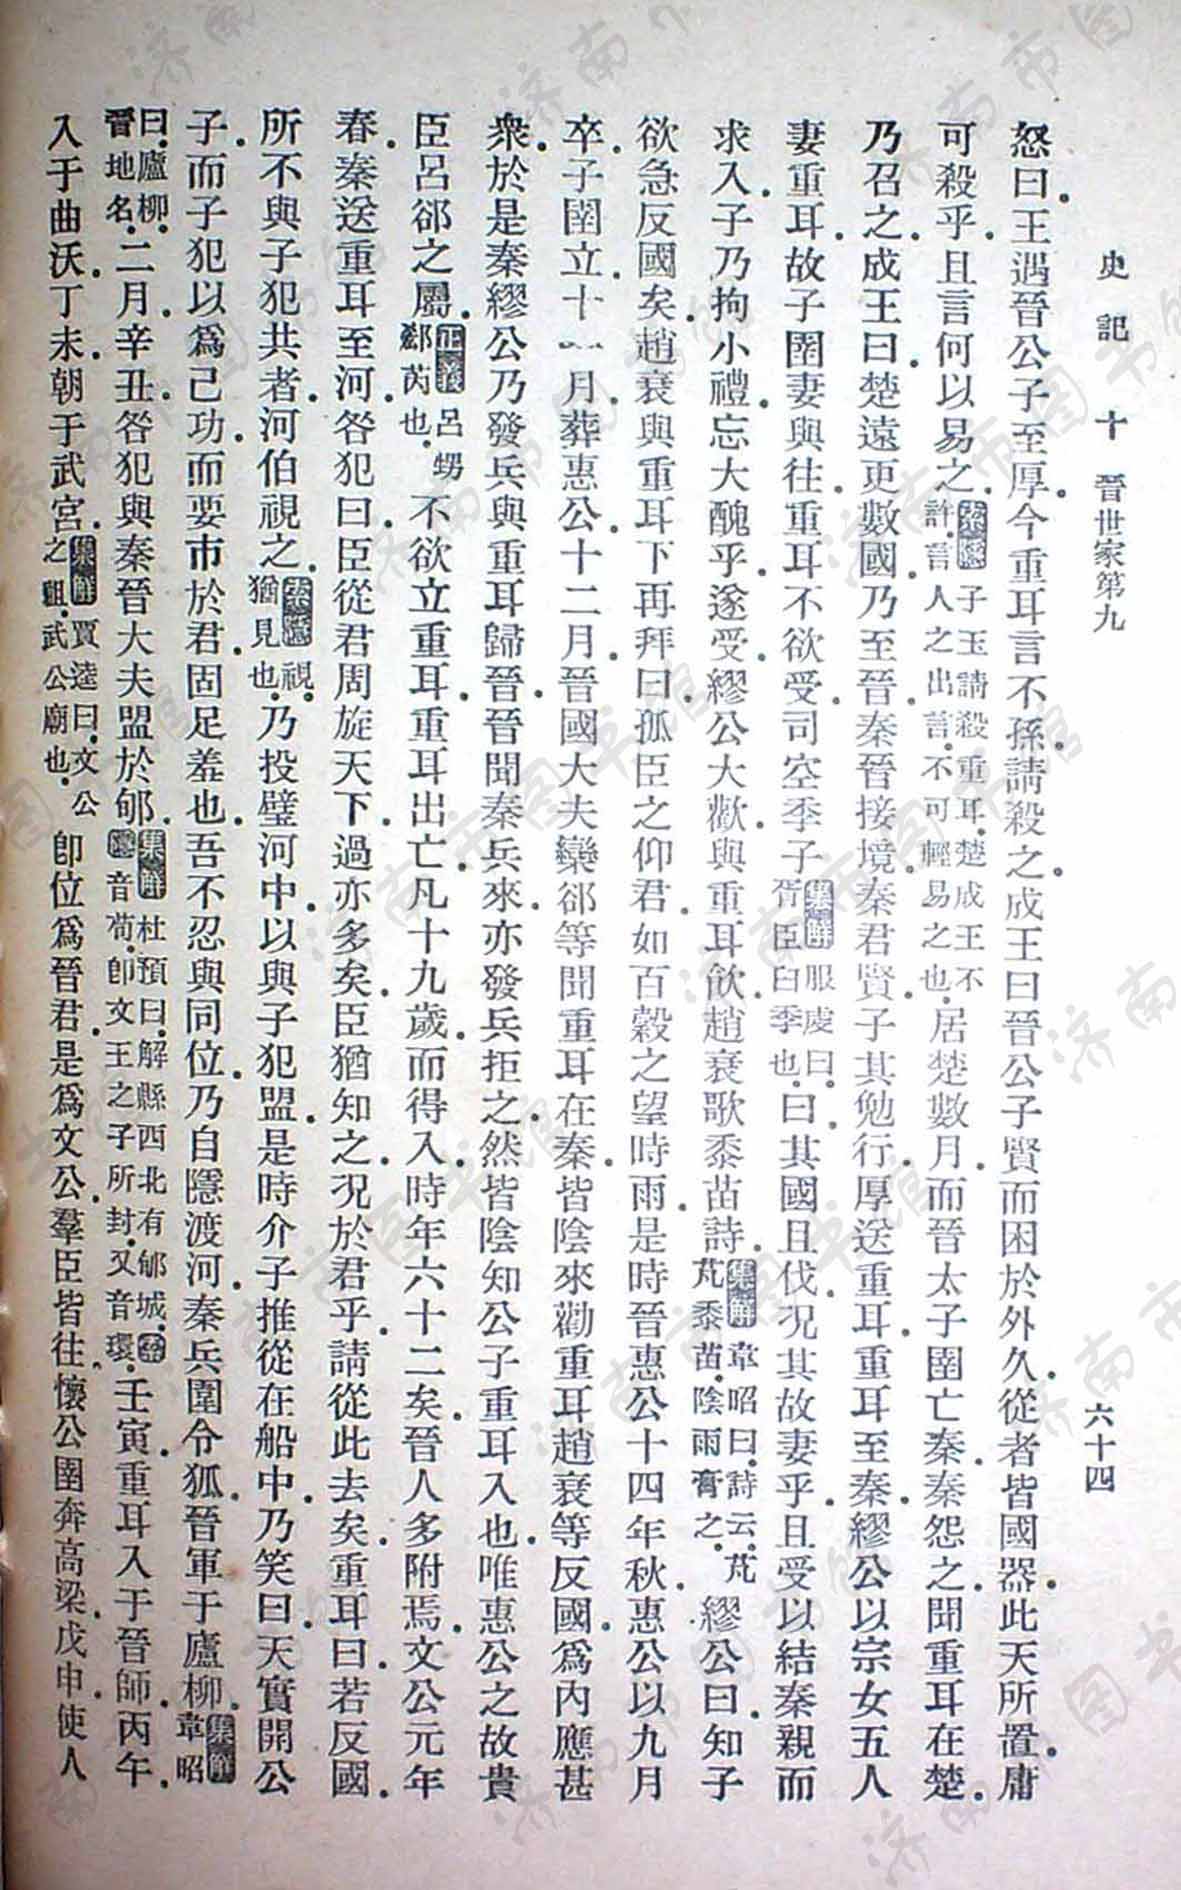 史記 十 晉世家第九 六十四
怒曰。王遇晉公子至厚。今重耳言不孫。請殺之。成王曰晉公子賢而困於外久。從者皆國器。此天所置。庸
可殺乎。且言何以易之。索隱子玉請殺重耳。楚成王不許。言人之出言。不可輕易之也。居楚數月。而晉太子圉亡秦。秦怨之。聞重耳在楚。
乃召之。成王曰。楚遠更數國。乃至晉。秦晉接境。秦君賢。子其勉行。厚送重耳。重耳至秦。繆公以宗女五人
妻重耳。故子圉妻與往。重耳不欲受。司空季子集解服虔曰。胥臣臼季也。曰。其國且伐。況其故妻乎。且受以結秦親而
求入。子乃拘小禮。忘大醜乎。遂受。繆公大歡。與重耳飲。趙衰歌黍苗詩。集解韋昭曰。詩云。芃芃黍苗。陰雨膏之。繆公曰。知子
欲急反國矣。趙衰與重耳下再拜曰。孤臣之仰君。如百穀之望時雨。是時晉惠公十四年秋。惠公以九月
卒。子圉立。十一月。葬惠公。十二月。晉國大夫欒郤等聞重耳在秦。皆陰來勸重耳趙衰等反國。爲內應甚
衆。於是秦繆公乃發兵與重耳歸晉。晉聞秦兵來。亦發兵拒之。然皆陰知公子重耳入也。唯惠公之故貴
臣呂郤之屬。正義呂甥郤芮也。不欲立重耳。重耳出亡。凡十九歲。而得入。時年六十二矣。晉人多附焉。文公元年
春。秦送重耳至河。咎犯曰。臣從君周旋天下。過亦多矣。臣猶知之。況於君乎。請從此去矣。重耳曰。若反國。
所不與子犯共者。河伯視之。索隱視。猶見也。乃投璧河中。以與子犯盟。是時介子推從在船中。乃笑曰。天實開公
子。而子犯以爲己功。而要市於君。固足羞也。吾不忍與同位。乃自隱渡河。秦兵圍令狐。晉軍于廬柳。集解韋昭
曰。廬柳。晉地名。二月。辛丑。咎犯與秦晉大夫盟於郇。集解杜預曰。解縣西北有郇城。索隱音荀。卽文王之子所封。又音環。壬寅。重耳入于晉師。丙午。
入于曲沃。丁未。朝于武宮。集解賈逵曰。文公之祖。武公廟也。卽位爲晉君。是爲文公。羣臣皆往。懷公圉奔高梁。戊申。使人
济南市图书馆